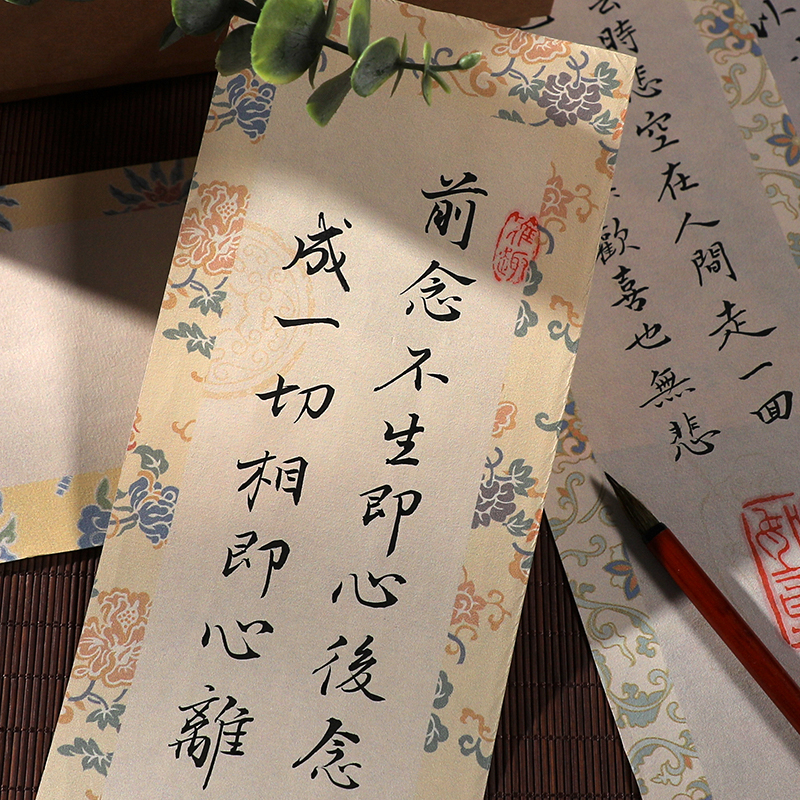 前念不生即心後念
成一切相即心離
雅趣
以
去時悲
空在人間走一回
歡喜也無悲